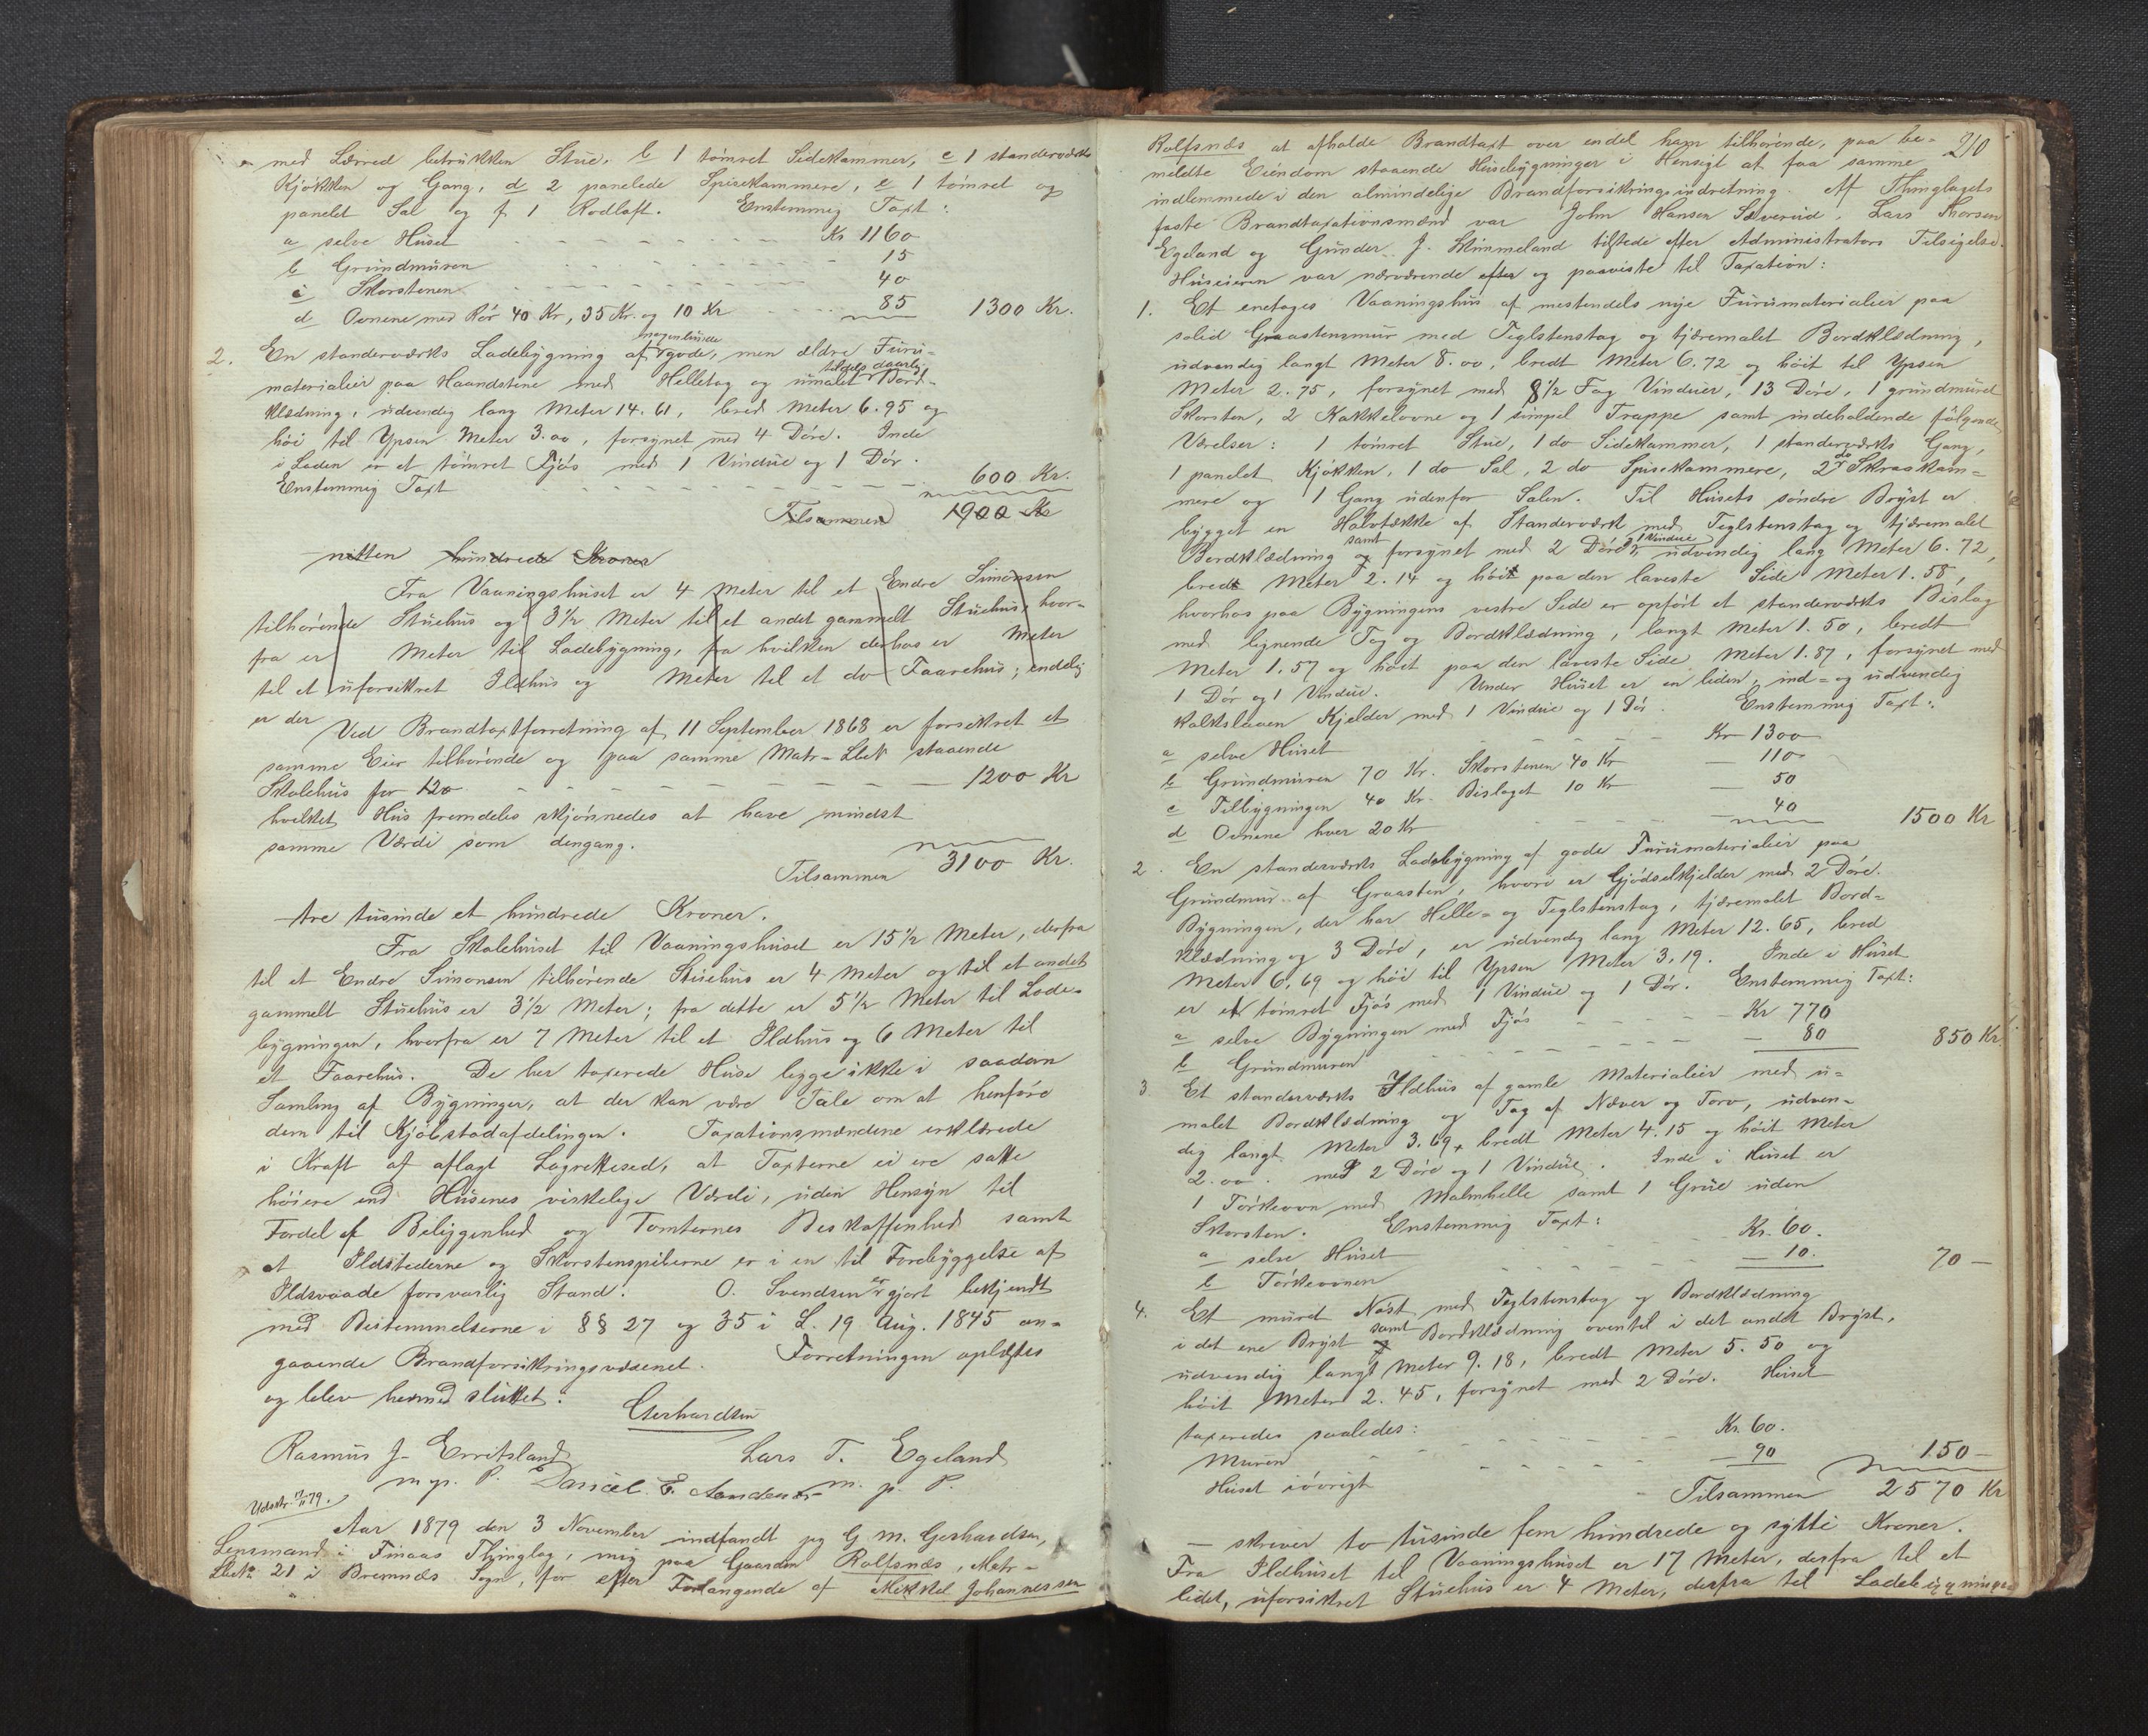 med Lærred betrukken Stue, b 1 tømret Sidekammer, c 1 standerværks
Kjøkken og Gang, d 2 panelede Spisekammere, e 1 tømret og
panelet Sal og f 1 Rodloft. Enstemmig Taxt:
a selve Huset Kr 1160
b Grundmuren 15
c Skorstenen 40
d Ovnene med Rør 40 Kr, 35 Kr. og 10 Kr 85 1300 Kr.
2. En standerværks Ladebygning af nogenlunde gode, men ældre Furu-
materialier paa Haandstene med Helletag og umalet tildels daarlig Bord-
klædning, udvendig lang Meter 14.61, bred Meter 6.95 og
høi til Ypsen Meter 3.00, forsynet med 4 Døre. Inde
i Laden er et tømret Fjøs med 1 Vindue og 1 Dør.
Enstemmig Taxt 600 Kr.
Tilsammen 1900 Kr
nitten hundrede Kroner
Fra Vaaningshuset er 4 Meter til et Endre Simonsen
tilhørende Stuehus og 3 1/2 Meter til et andet gammelt Stuehus, hvor-
fra er Meter til Ladebygning, fra hvilken derhos er Meter
til et uforsikret Ildhus og Meter til et do Faarehus; endelig
er der
Ved Brandtaxtforretning af 11 September 1868 er forsikret et
samme Eier tilhørende og paa samme Matr-Lbet staaende
Skolehus for 120 1200 Kr
hvilket Hus fremdeles skjønnedes at have mindst
samme Værdi som dengang.
Tilsammen 3100 Kr.
tre tusinde et hundrede Kroner.
Fra Skolehuset til Vaaningshuset er 15 1/2 Meter, derfra
til et Endre Simonsen tilhørende Stuehus er 4 Meter og til et andet
gammelt Stuehus er 3 1/2 Meter; fra dette er 5 1/2 Meter til Lade-
bygningen, hvorfra er 7 Meter til et Ildhus og 6 Meter til
et Faarehus. De her taxerede Huse ligge ikke i saadan
Samling af Bygninger, at der kan være Tale om at henføre
dem til Kjøbstadafdelingen. Taxationsmændene erklærede
i Kraft af aflagt Lagrettesed, at Taxterne ei ere satte
høiere end Husenes virkelige Værdi, uden Hensyn til
Fordel af Beliggenhed og Tomternes Beskaffenhed samt
at Ildstederne og Skorstenspiberne er i en til Forebyggelse af
Ildsvaade forsvarlig Stand. O. Svendsen er gjort bekjendt
med Bestemmelserne i §§ 27 og 35 i L. 19 Aug. 1845 an-
gaaende Brandforsikringsvæsenet. Forretningen oplæstes
og blev hermed sluttet.
Gerhardsen
Rasmus J. Erritsland Lars T. Egeland
m. p. P. Daniel E. m. p. P.
Udskr. 17/11 79.
Aar 1879 den 3 November indfandt jeg G. M. Gerhardsen,
Lensmand i Finaas Thinglag, mig paa Gaarden Rolfsnæs, Matr-
Lbet 21 i Bremnæs Sogn, for efter Forlangende af Mikkel Johannessen
210
Rolfsnæs at afholde Brandtaxt over endel ham tilhørende, paa be-
meldte Eiendom staaende Husebygninger i Hensigt at faa samme
indlemmede i den almindelige Brandforsikringsindretning. Af Thinglagets
faste Brandtaxationsmænd var John Hansen Sæverud, Lars Thorsen
Egeland og Gunder J. Skimmeland tilstede efter Administrators Tilsigelse.
Huseieren var nærværende efter og paaviste til Taxation:
1. Et enetages Vaaningshus af mestendels nye Furumaterialier paa
solid Graastensmur med Teglstenstag og tjæremalet Bordklædning,
udvendig langt Meter 8.00, bredt Meter 6.72 og høit til Ypsen
Meter 2.75, forsynet med 8 1/2 Fag Vinduer, 13 Døre, 1 grundmuret
Skorsten, 2 Kakkelovne og 1 simpel Trappe samt indeholdende følgende
Værelser: 1 tømret Stue, 1 do Sidekammer, 1 standerværks Gang,
1 panelet Kjøkken, 1 do Sal, 2 do Spisekammere, 2 do Skraakam-
mere og 1 Gang udenfor Salen. Til Husets søndre Bryst er
bygget en Halvtække af Standerværk med Teglstenstag og tjæremalet
Bordklædning og samt forsynet med 2 Døre, 1 Vindue udvendig lang Meter 6.72,
bredt Meter 2.14 og høit paa den laveste Side Meter 1.58,
hvorhos paa Bygningens vestre Side er opført et standerværks Bislag
med lignende Tag og Bordklædning, langt Meter 1.50, bredt
Meter 1.57 og høit paa den laveste Side Meter 1.87, forsynet med
1 Dør og 1 Vindue. Under Huset er en liden, ind- og udvendig
kalkslaaen Kjelder med 1 Vindue og 1 Dør. Enstemmig Taxt:
a selve Huset Kr 1300
b Grundmuren 70 Kr. Skorstenen 40 Kr — 110
c Tilbygningen 40 Kr. Bislaget 10 Kr — 50
d Ovnene hver 20 Kr 40 1500 Kr
2. En standerværks Ladebygning af gode Furumaterialier paa
Grundmur af Graasten, hvori er Gjødselkjelder med 2 Døre.
Bygningen, der har Helle- og Teglstenstag, tjæremalet Bord-
klædning og 3 Døre, er udvendig lang Meter 12.65, bred
Meter 6.69 og høi til Ypsen Meter 3.19. Inde i Huset
er et tømret Fjøs med 1 Vindue og 1 Dør. Enstemmig Taxt:
a selve Bygningen med Fjøs Kr 770
b Grundmuren — 80 850 Kr.
3. Et standerværks Ildhus af gamle Materialier med u-
malet Bordklædning og Tag af Næver og Torv, udven-
dig langt Meter 3.69, bredt Meter 4.15 og høit Meter
2.00. med 2 Døre og 1 Vindue. Inde i Huset er
1 Tørkeovn med Malmhelle samt 1 Grue uden
Skorsten. Enstemmig Taxt:
a selve Huset Kr. 60.
b Tørkeovnen — 10. 70 —
4. Et muret Nøst med Teglstenstag og Bordklædning
i det ene Bryst og samt Bordklædning oventil i det andet Bryst,
udvendig langt Meter 9.18, bredt Meter 5.50 og
høit Meter 2.45, forsynet med 2 Døre. Huset
taxeredes saaledes:
Muren Kr. 60.
Huset iøvrigt — 90 150 —
Tilsammen 2570 Kr
— skriver to tusinde fem hundrede og sytti Kroner.
Fra Ildhuset til Vaaningshuset er 17 Meter, derfra til et
lidet, uforsikret Stuehus er 4 Meter, derfra til Ladebygningen